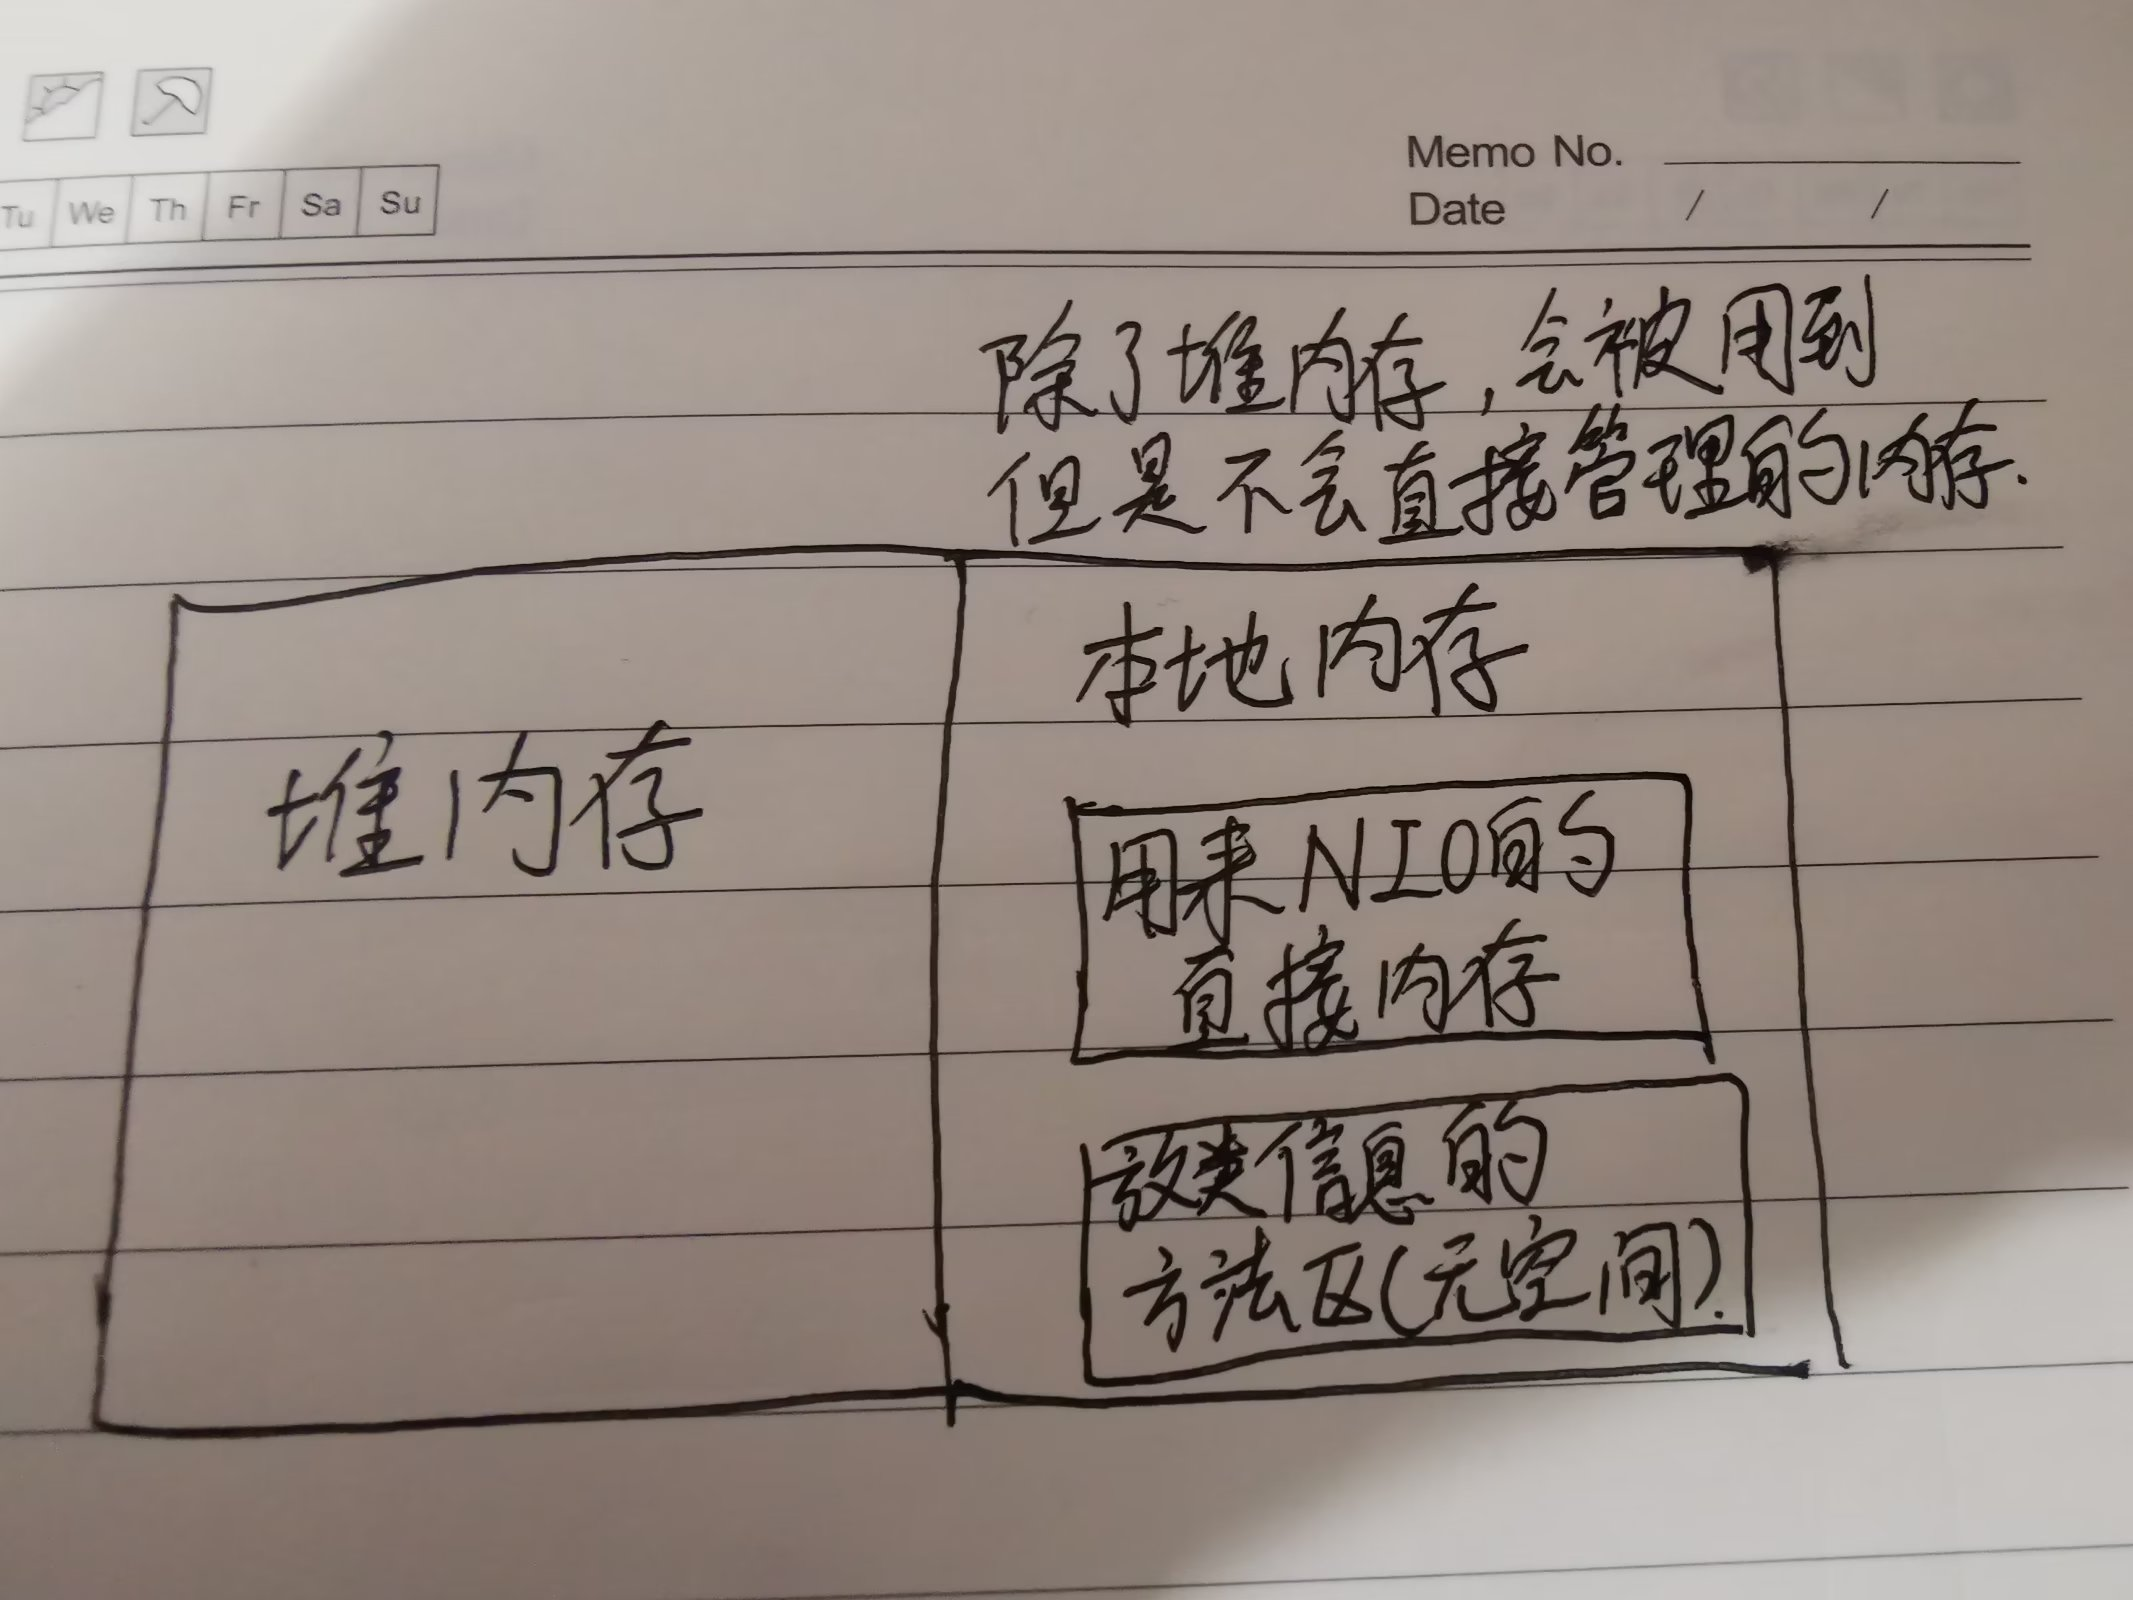 Tu We Th Fr Sa Su
Memo No.
Date / /
除了堆内存，会被用到
但是不会直接管理的内存.
本地内存
堆内存
用来NIO的
直接内存
放类信息的
方法区(元空间).